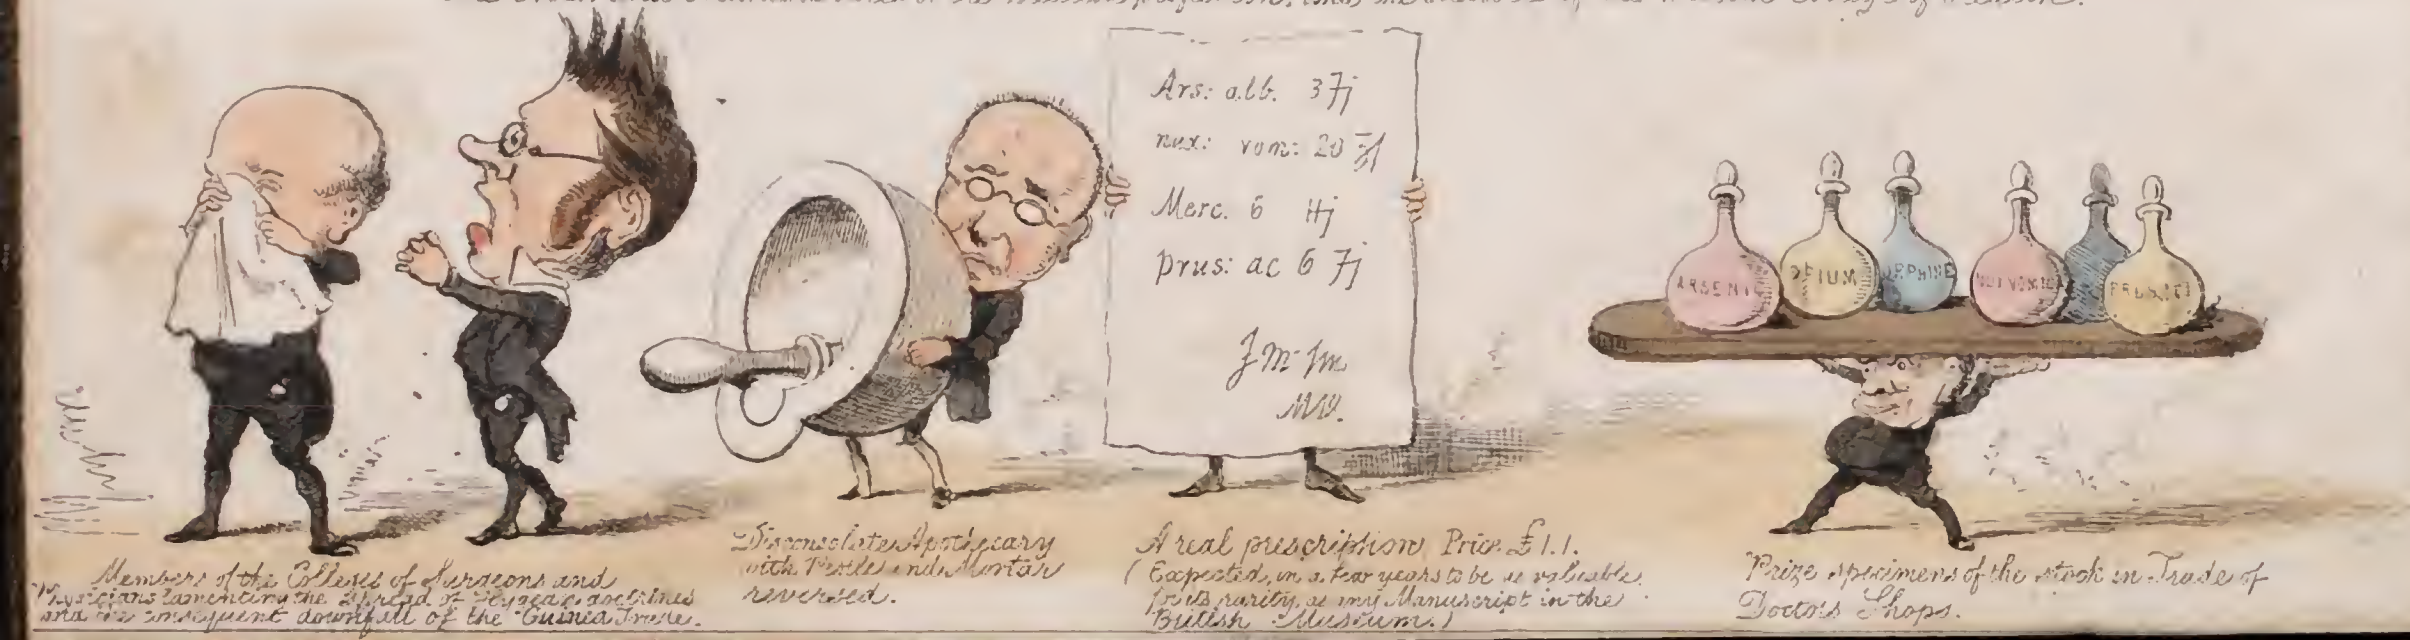 Ars: alb. 3 Fj
nux: vom: 20
Merc. 6 Hj
prus: ac 6 Fj
ARSENIC
OPIUM
ORPHINE
NUX VOMIC
PRUSSIC
Members of the College of Surgeons and
Physicians lamenting the Spread of Hygeac doctrines
and the consequent downfall of the "Guinea Trade.
Disconsolate Apothecary
with Pestle and Mortar
reversed.
A real prescription, Price £1.1.
(Expected, in a few years to be as valuable
for its rarity, as any Manuscript in the
British Museum.)
Prize specimens of the stock in Trade of
Doctors Shops.